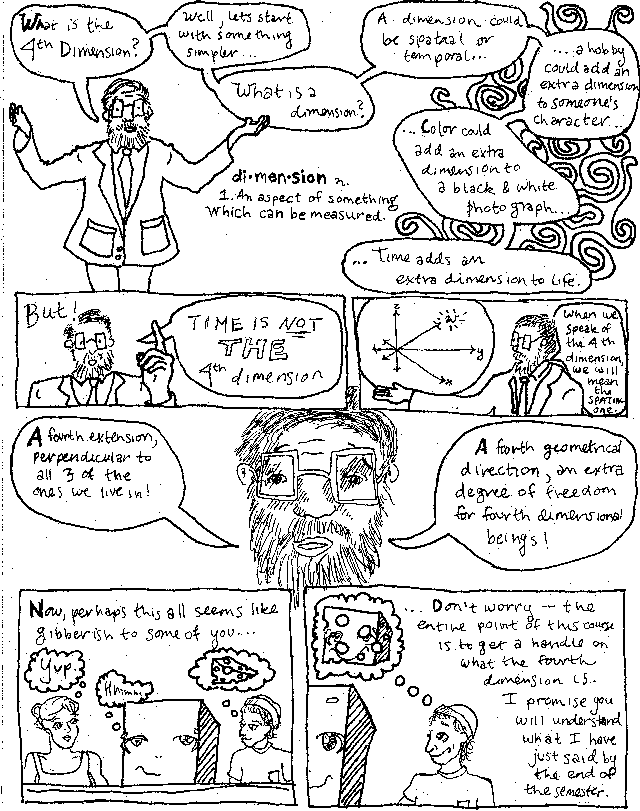 What is the
4th Dimension?
Well, lets start
with something
simpler...
What is a
dimension?
A dimension could
be spatial or
temporal...
...a hobby
could add an
extra dimension
to someone's
character...
...Color could
add an extra
dimension to
a black & white
photograph...
...Time adds an
extra dimension to life.
di·men·sion n.
1. An aspect of something
which can be measured.
But!
TIME IS NOT
THE
4th dimension
z
y
x
When we
speak of
the 4th
dimension,
we will
mean
the
SPATIAL
one.
A fourth extension,
perpendicular to
all 3 of the
ones we live in!
A fourth geometrical
direction, an extra
degree of freedom
for fourth dimensional
beings!
Now, perhaps this all seems like
gibberish to some of you...
Yup.
Hmmm,
... Don't worry — the
entire point of this course
is to get a handle on
what the fourth
dimension is.
I promise you
will understand
what I have
just said by
the end of
the semester.